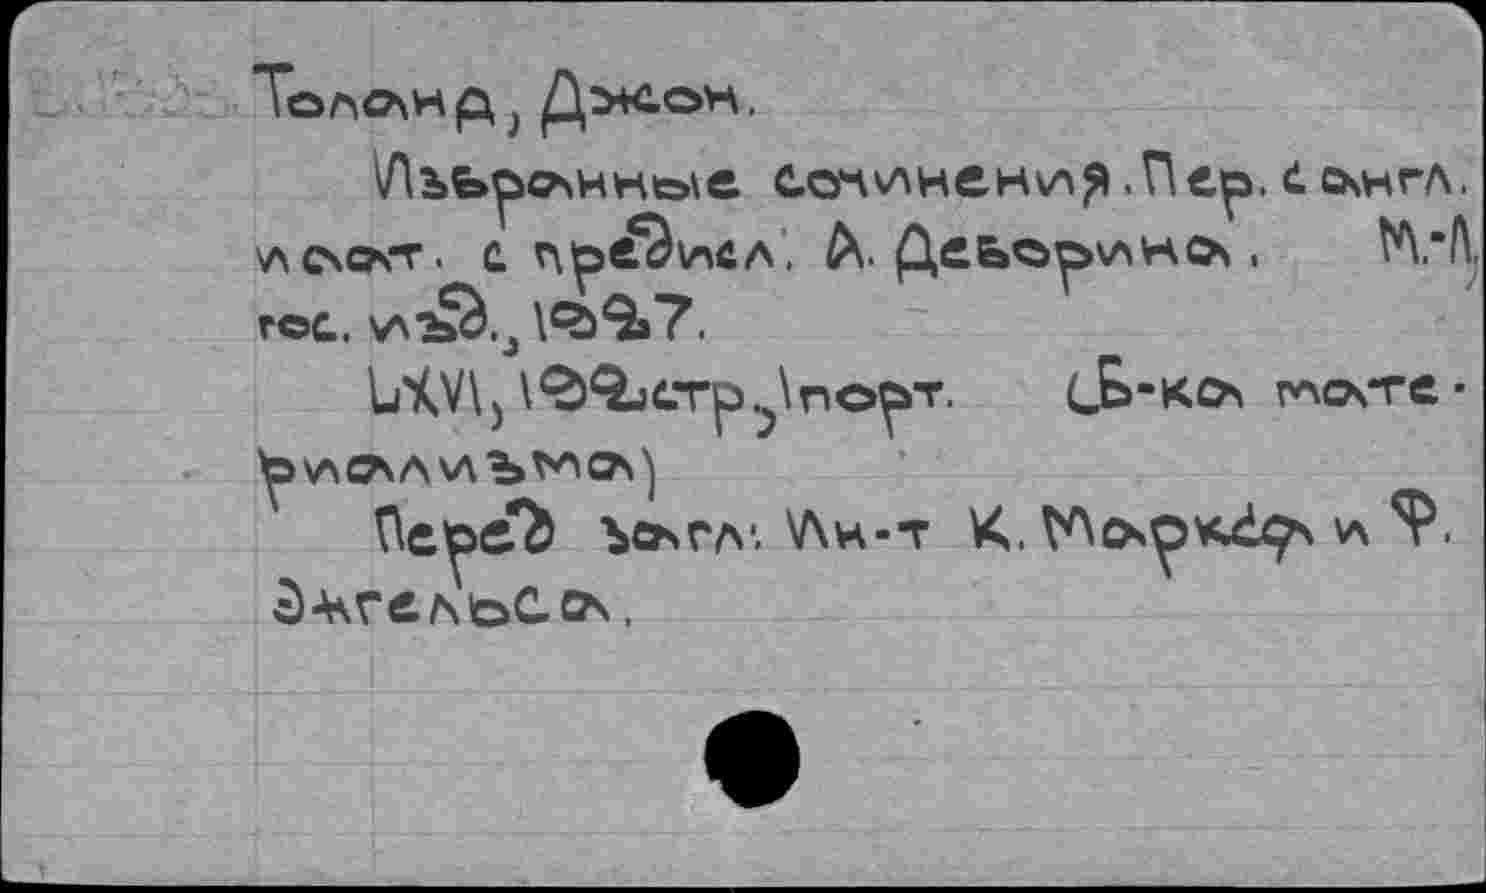 Толанд, Джон.
Избранные сочинения. Пер. с англ.
и лат. с предисл. А. Деборина. М.-Л,
гос. изд., 1927.
LXVI, 192 стр., 1 порт. (Б-ка мате-
риализма)
Перед загл.: Ин-т К. Маркса и Ф.
Энгельса.